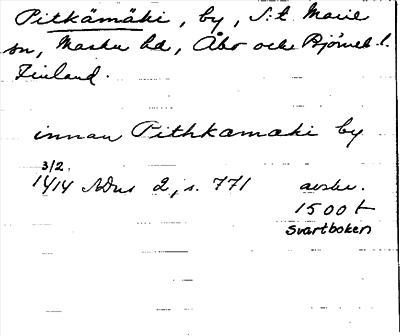 Pitkämäki, by, S:t Marie
sn, Masku hd, Åbo och Björneb. l.
Finland.
innan Pithkamaki by
3/2.
1414 SDns 2, s. 771 avskr.
1500 t
Svartboken